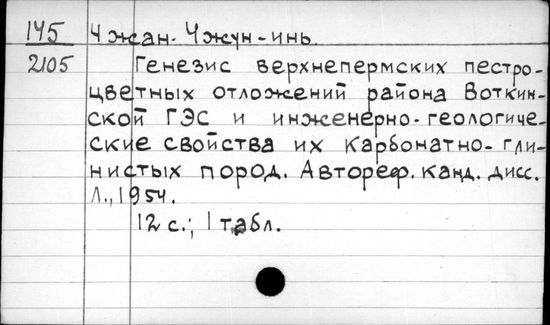 145 Чжан-Чжун-инь.
2105 Генезис верхнепермских пестро-
цветных отложений района Воткин-
ской ГЭС и инженерно-геологиче-
ские свойства их карбонатно-гли-
нистых пород. Автореф. канд. дисс.
Л., 1954.
12 с.; 1 табл.